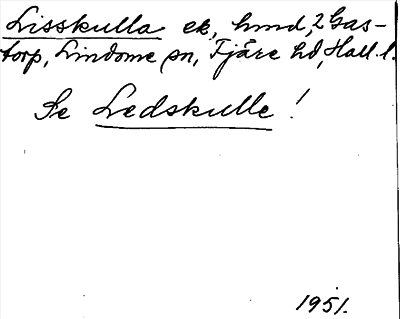 Lisskulla ek, hmd, 2 Gas-
torp, Lindome sn, Fjäre hd, Hall. l.
Se Ledskulle!
1951.